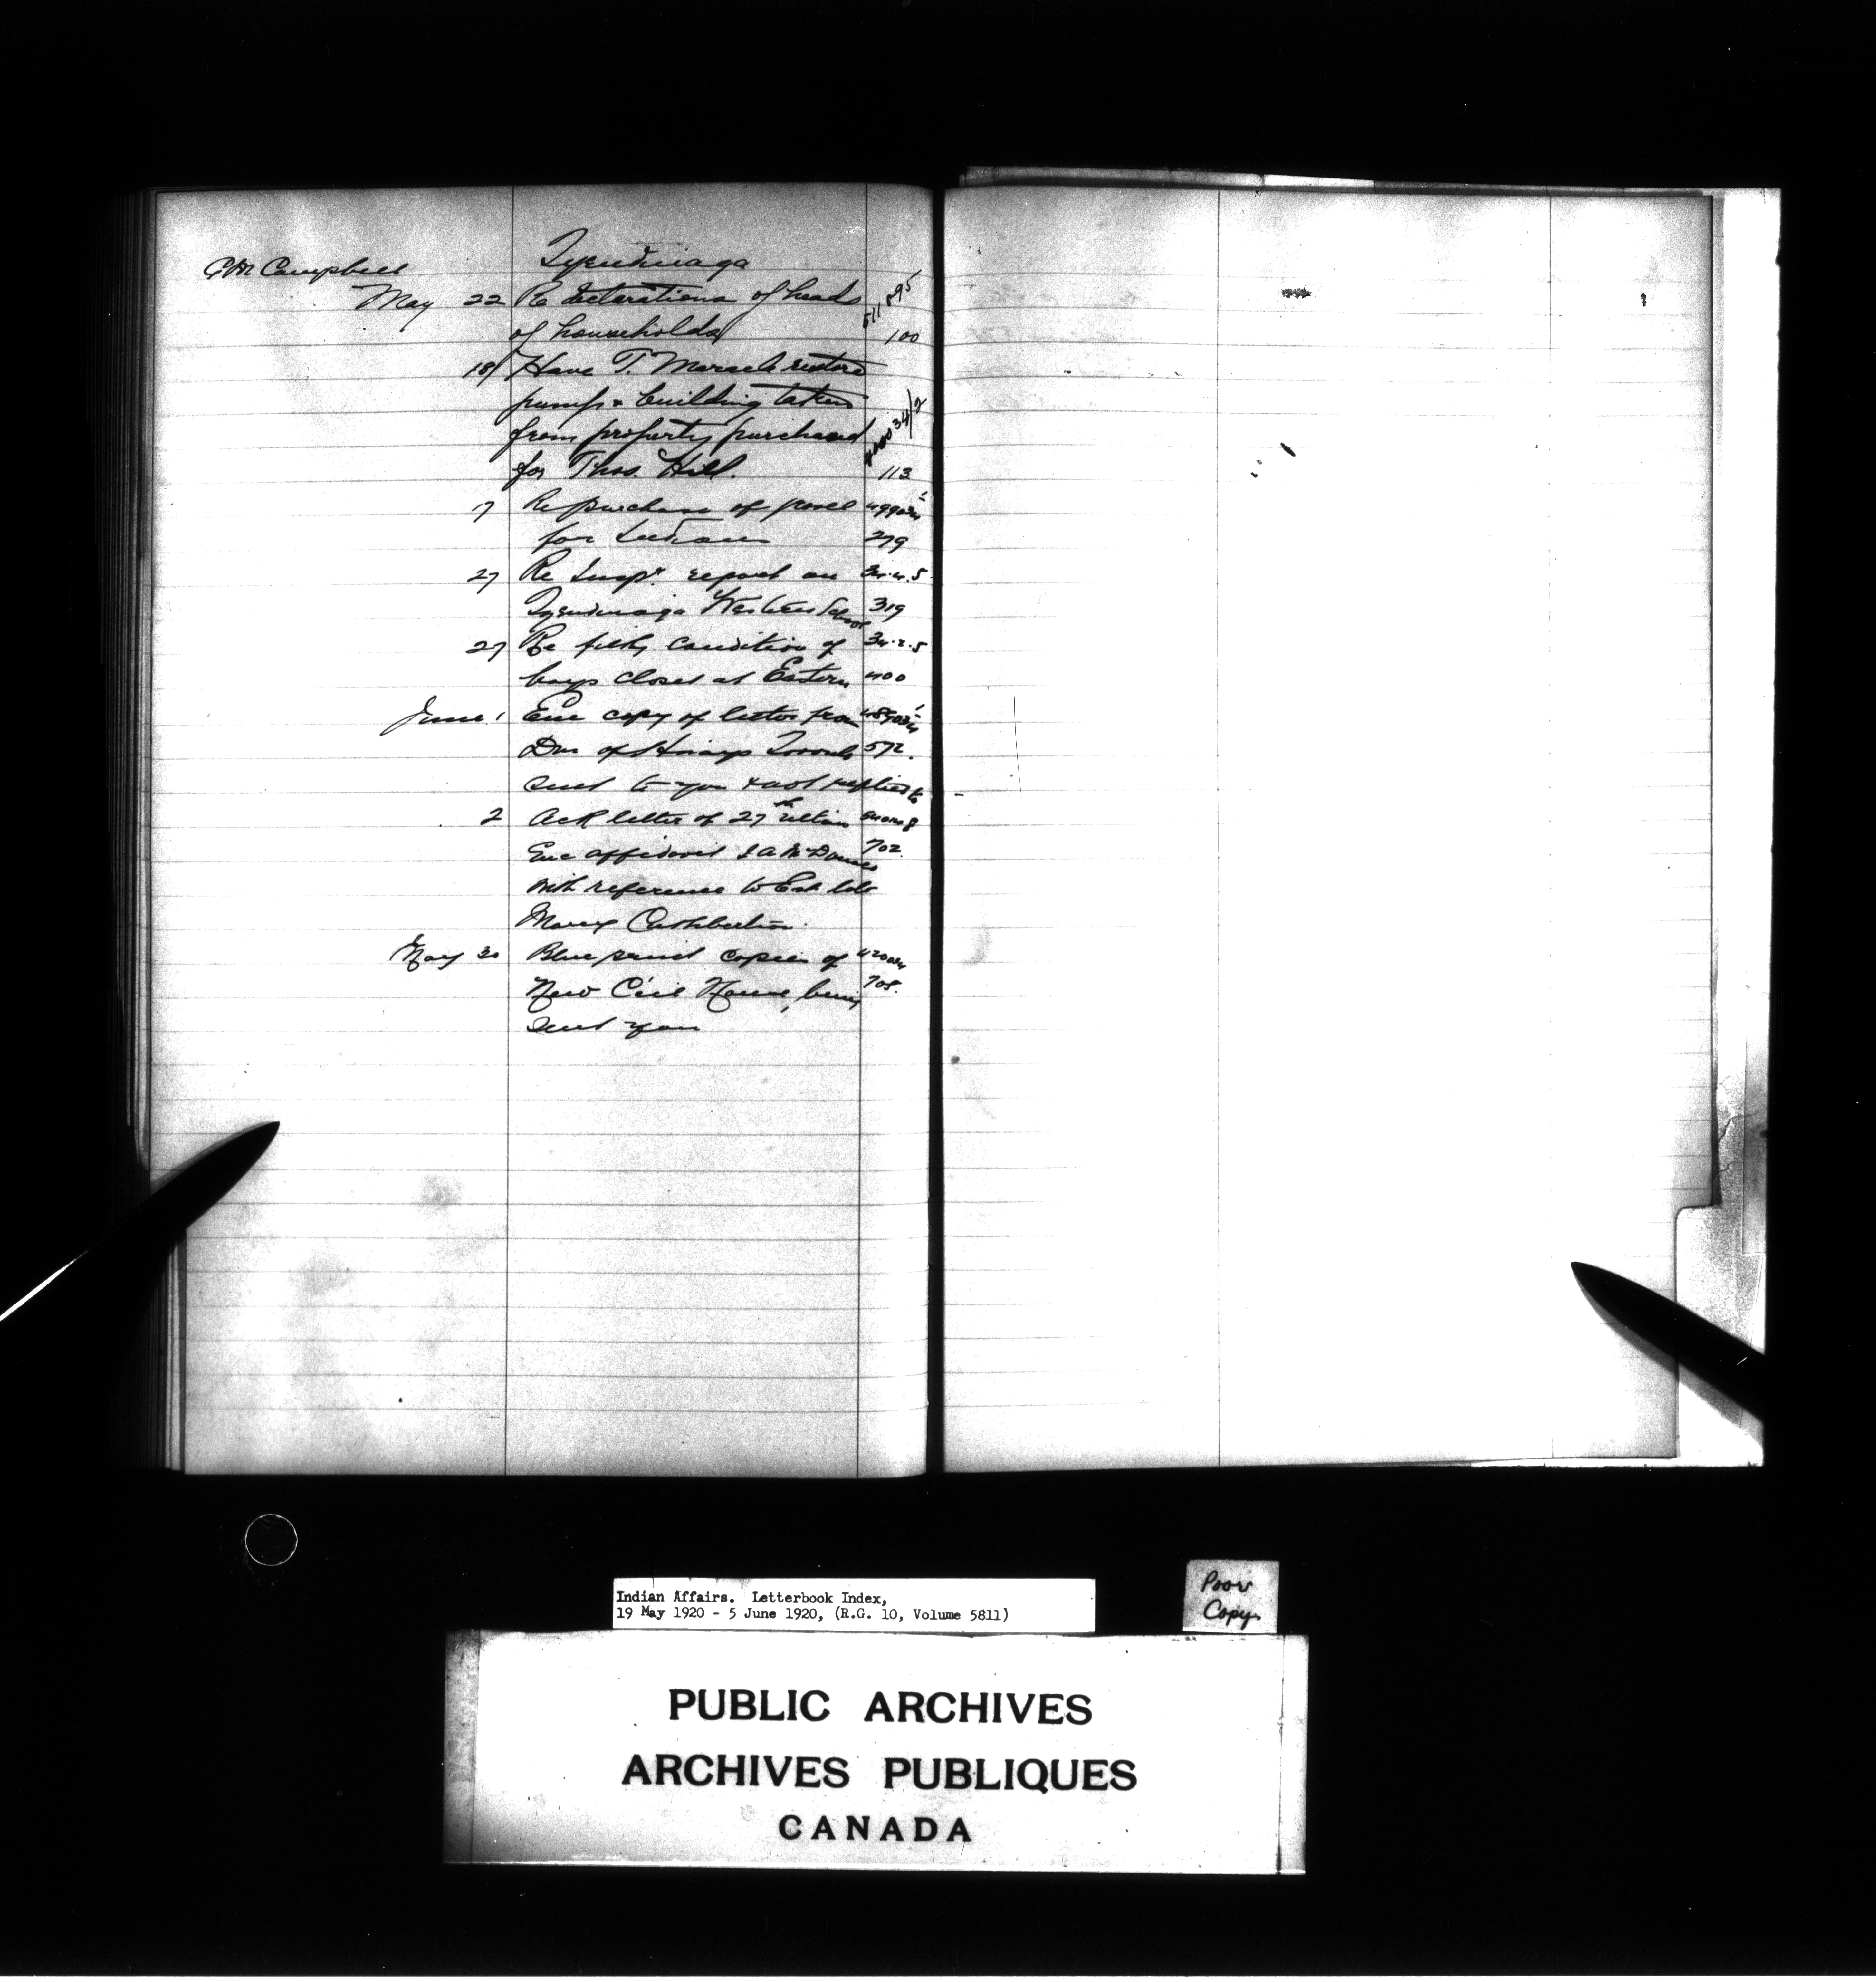 G M Campbell Tyendinaga
May 22 Re declarations of heads 511895
of households 100
18 Have T. Maracle restore
pump & building taken
from property purchased
for Thos. Hill. 113
7 Re purchase of
for Indians 279
27 Re Inspr. report on
Tyendinaga Western School 319
27 Re filthy condition of
boys closet at Eastern 400
June 1 Enc copy of letter from
of Toronto 572.
sent to you & not replied to
2 Ack letter of 27th ultimo
Enc affidavit 702.
with reference to Est late
Mary Cuthbertson
May 30 Blue print copies of
New C'cil House, being 708.
sent you
Indian Affairs. Letterbook Index,
19 May 1920 - 5 June 1920, (R.G. 10, Volume 5811)
Poor
Copy
PUBLIC ARCHIVES
ARCHIVES PUBLIQUES
CANADA